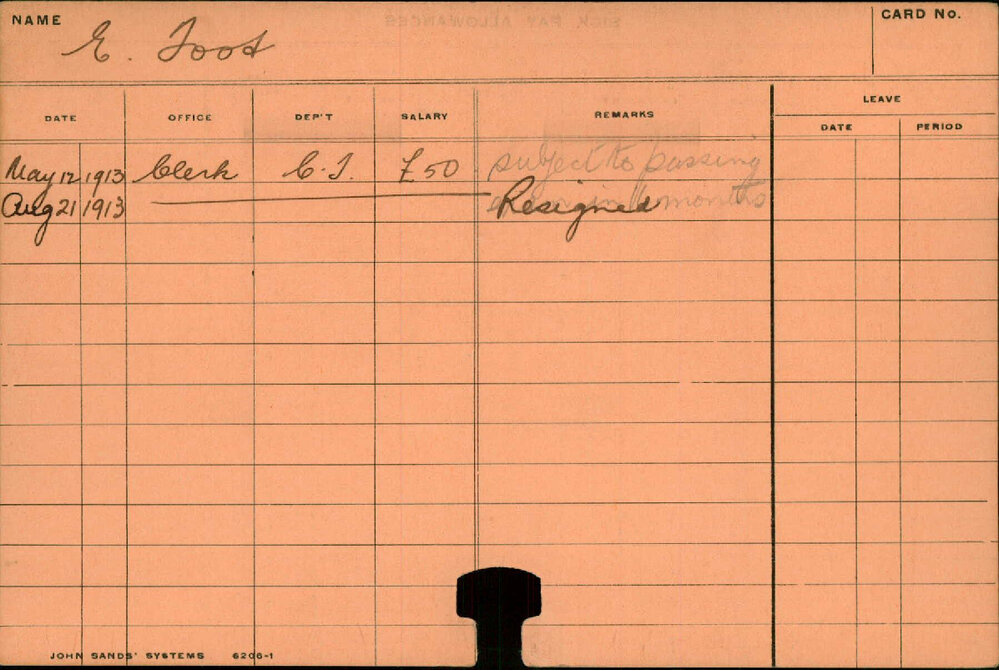 SICK PAY ALLOWANCES
NAME E. Foot CARD No.
LEAVE
DATE OFFICE DEP'T SALARY REMARKS DATE PERIOD
May 12 1913 Clerk C.T. £50 subject to passing
Aug 21 1913 Resigned in 6 months
JOHN SANDS' SYSTEMS 6206-1